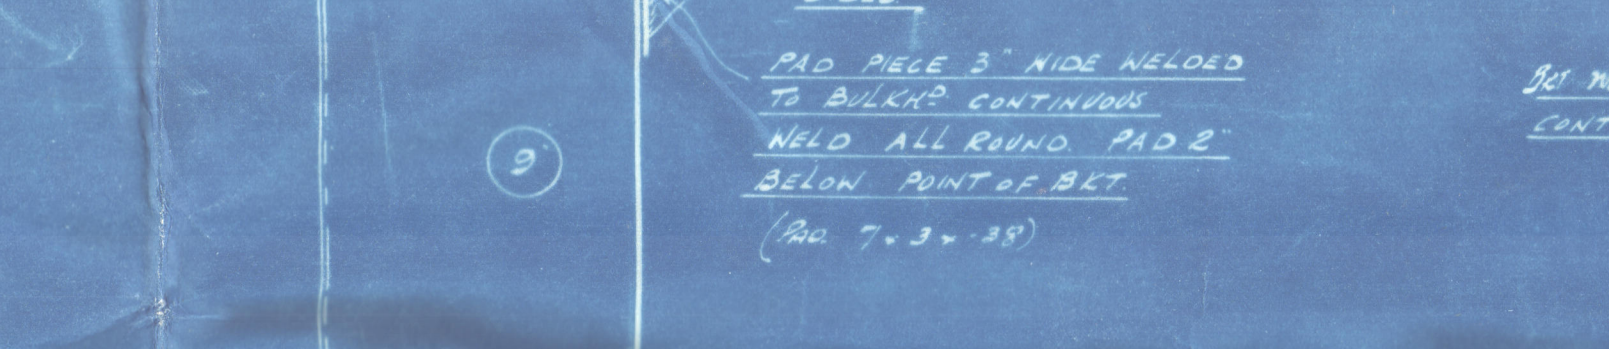 PAD PIECE 3" WIDE WELDED
TO BULKHD CONTINUOUS
WELD ALL ROUND. PAD 2"
BELOW POINT OF BKT.
(PAD. 7 x 3 x .38)
9
BKT
CONT